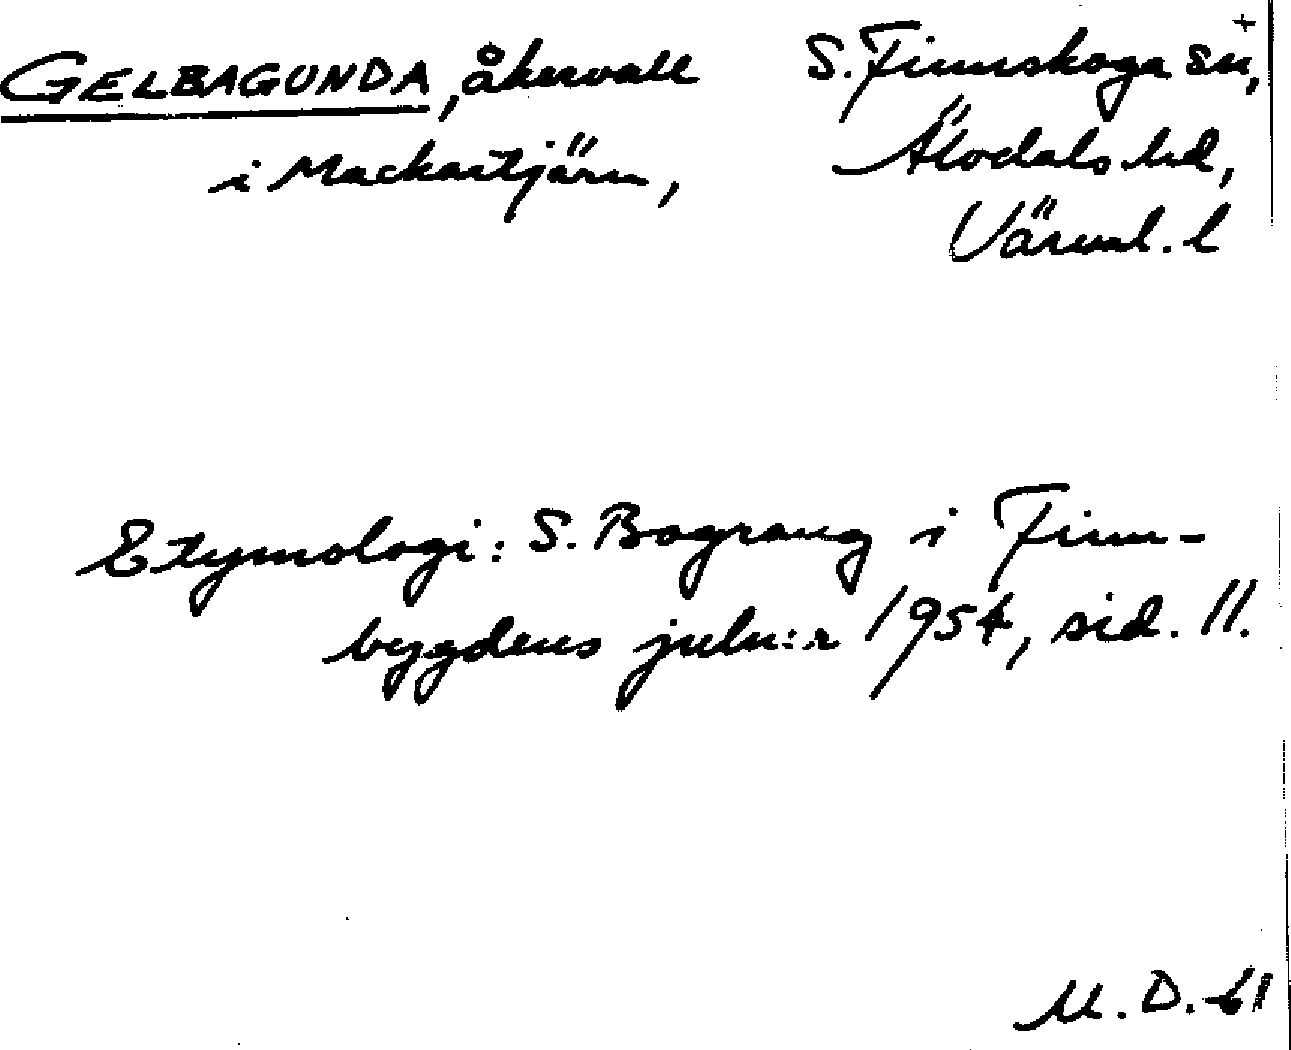 GELBAGUNDA, åkervall
i Mackartjärn,
S. Finnskoga sn,
Älvdals hd,
Värml. l
Etymologi: S. Bograng i Finn-
bygdens juln:r 1954, sid. 11.
M. D. 61